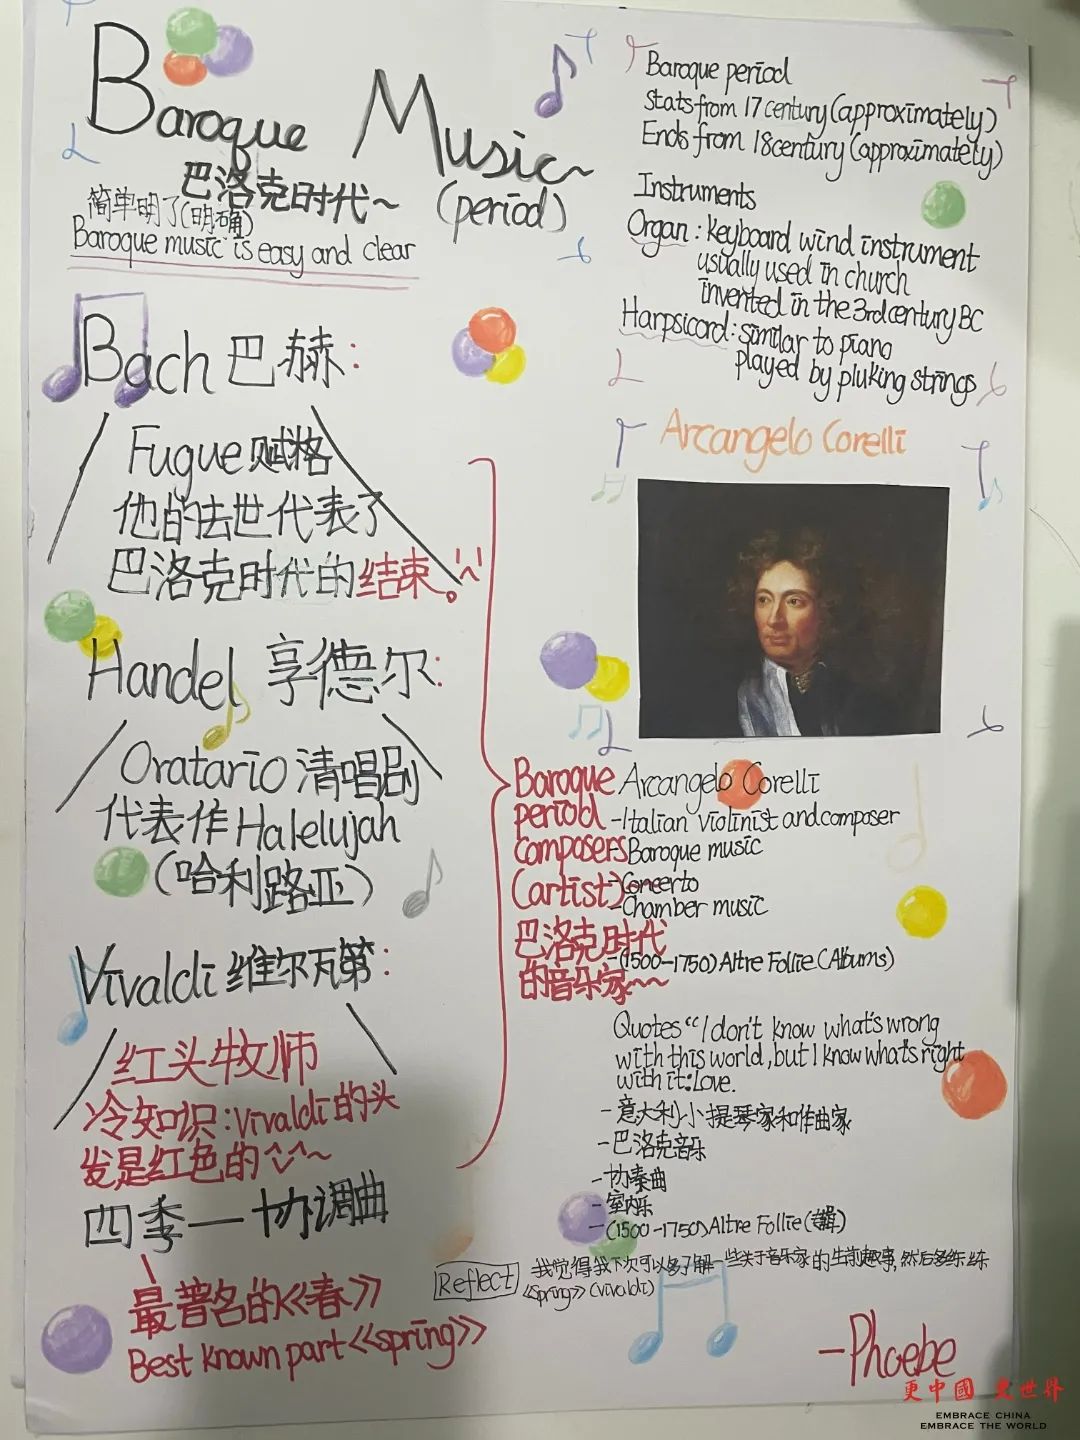 Baroque Music~
(period)
巴洛克时代~
简单明了(明确)
Baroque music is easy and clear
Bach 巴赫:
Fugue 赋格
他的去世代表了
巴洛克时代的结束。
Handel 亨德尔:
Oratario 清唱剧
代表作 Halelujah
(哈利路亚)
Vivaldi 维尔瓦第:
红头牧师
冷知识:Vivaldi的头
发是红色的^^~
四季—协调曲
最普名的《春》
Best known part《spring》
Baroque period
Stats from 17 century (approximately)
Ends from 18century (approximately)
Instruments
Organ : keyboard wind instrument
usually used in church
invented in the 3rd century BC
Harpsicord: similar to piano
played by pluking strings
Arcangelo Corelli
Baroque
period
composers
(artist)
巴洛克时代
的音乐家~~
Arcangelo Corelli
-Italian violinist and composer
-Baroque music
-Concerto
-Chamber music
-(1500-1750) Altre Follie (Albums)
Quotes “I don't know what's wrong
with this world, but I know what's right
with it: Love.
-意大利小提琴家和作曲家
-巴洛克音乐
-协奏曲
-室内乐
-(1500-1750) Altre Follie (专辑)
Reflect 我觉得我下次可以多了解一些关于音乐家的生前趣事,然后多练练
《spring》(vivaldi)
-Phoebe
更中國 更世界
EMBRACE CHINA
EMBRACE THE WORLD